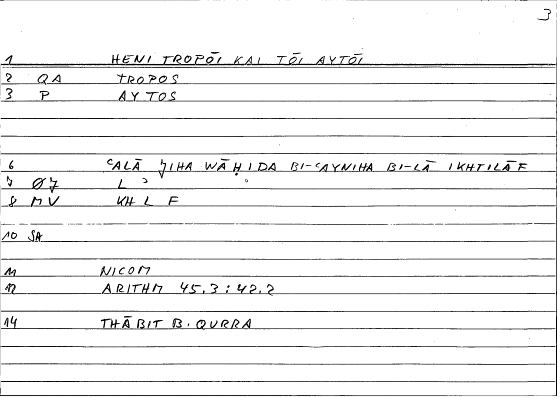 3
1 HENI TROPŌI KAI TŌI AYTŌI
2 QA TROPOS
3 P AYTOS
6 ʿALĀ JIHA WĀḤIDA BI-ʿAYNIHA BI-LĀ IKHTILĀF
7 ØJ L ʾ
8 MV KH L F
10 SA
11 NICOM
12 ARITHM 45.3 : 42.2
14 THĀBIT B. QURRA